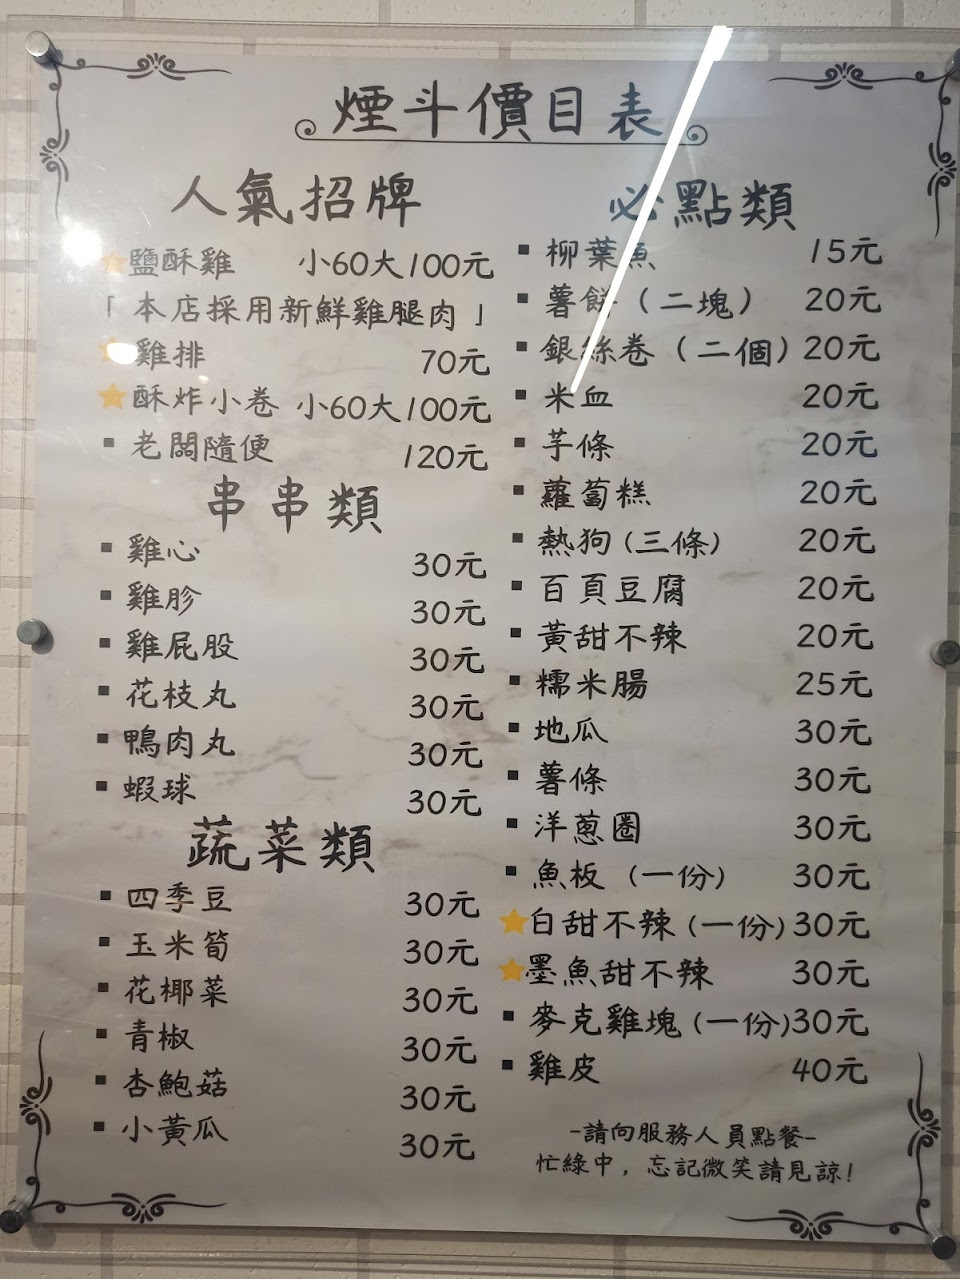 煙斗價目表
人氣招牌
鹽酥雞 小60大100元
「本店採用新鮮雞腿肉」
雞排 70元
酥炸小卷 小60大100元
老闆隨便 120元
串串類
雞心 30元
雞胗 30元
雞屁股 30元
花枝丸 30元
鴨肉丸 30元
蝦球 30元
蔬菜類
四季豆 30元
玉米筍 30元
花椰菜 30元
青椒 30元
杏鮑菇 30元
小黃瓜 30元
必點類
柳葉魚 15元
薯餅（二塊） 20元
銀絲卷（二個） 20元
米血 20元
芋條 20元
蘿蔔糕 20元
熱狗(三條) 20元
百頁豆腐 20元
黃甜不辣 20元
糯米腸 25元
地瓜 30元
薯條 30元
洋蔥圈 30元
魚板（一份） 30元
白甜不辣(一份) 30元
墨魚甜不辣 30元
麥克雞塊(一份) 30元
雞皮 40元
-請向服務人員點餐-
忙綠中，忘記微笑請見諒!